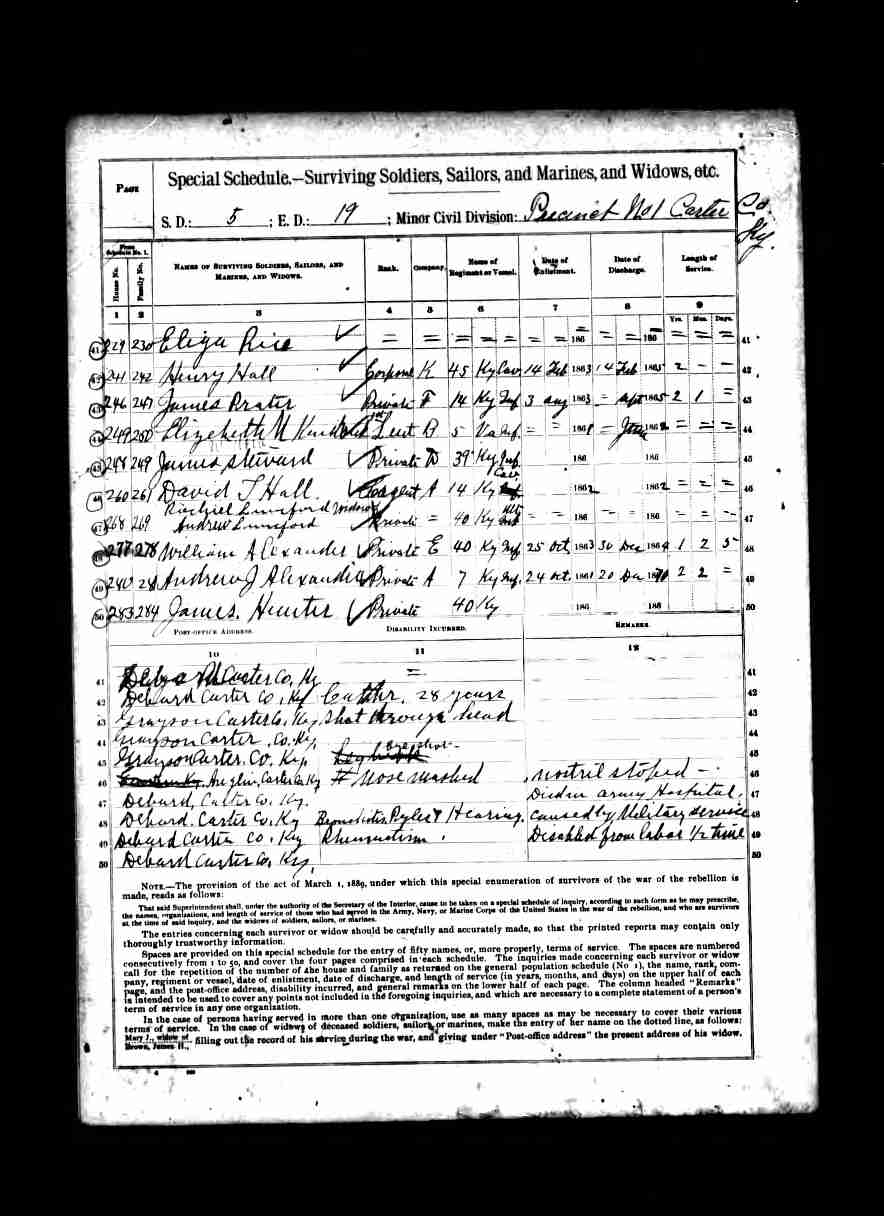 PAGE
Special Schedule.—Surviving Soldiers, Sailors, and Marines, and Widows, etc.
S. D.: 5 ; E. D.: 19 ; Minor Civil Division: Precinct No 1 Carter Co Ky.
From Schedule No. 1.
House No. Family No. NAMES OF SURVIVING SOLDIERS, SAILORS, AND MARINES, AND WIDOWS. Rank. Company. Name of Regiment or Vessel. Date of Enlistment. Date of Discharge. Length of Service.
1 2 3 4 5 6 7 8 9
Yrs. Mos. Days.
41 229 230 Eliza Rice = = = = = = = 186 = = = 186 = = = 41
42 241 242 Henry Hall Corporal K 45 Ky Cav 14 Feb 1863 14 Feb 1865 2 - - 42
43 246 247 James Prater Private F 14 Ky Inf 3 aug 1863 = Sept 1865 2 1 = 43
44 249 250 Elizabeth M 1st Lieut B 5 Va Inf. = = 1861 = 1862 = = = 44
45 248 249 James Steward Private D 39 Ky Inf 186 186 45
46 260 261 David T Hall. A 14 Ky Cav. 1862 1862 = = = 46
Rachel Lunsford widow
47 268 269 Andrew Lunsford Private = 40 Ky = = 186 = = 186 = = = 47
48 277 278 William Alexander Private E 40 Ky Inf 25 Oct 1863 30 Dec 1864 1 2 5 48
49 280 281 Andrew J Alexander Private A 7 Ky Inf. 24 oct. 1861 20 De 2 2 = 49
50 283 284 James. Hunter Private 40 Ky 186 186 50
POST-OFFICE ADDRESS. DISABILITY INCURRED. REMARKS.
10 11 12
41 Carter Co, Ky = 41
42 Debard Carter Co, Ky 28 years 42
43 Grayson Carter Co, Ky. Shot through head 43
44 Grayson Carter, Co. Ky, 44
45 Grayson Carter. Co. Ky. 45
46 Carter Co Ky Nose mashed nostril stoped - 46
47 Debard, Carter Co. Ky. Died in army Hospital. 47
48 Debard. Carter Co. Ky Pyles & Hearing. caused by Military service 48
49 Debard Carter Co, Ky Rheumatism. Disabled from labor 1/2 time 49
50 Debard Carter Co, Ky, 50
NOTE.—The provision of the act of March 1, 1889, under which this special enumeration of survivors of the war of the rebellion is
made, reads as follows:
That said Superintendent shall, under the authority of the Secretary of the Interior, cause to be taken on a special schedule of inquiry, according to such form as he may prescribe,
the names, organizations, and length of service of those who had served in the Army, Navy, or Marine Corps of the United States in the war of the rebellion, and who are survivors
at the time of said inquiry, and the widows of soldiers, sailors, or marines.
The entries concerning each survivor or widow should be carefully and accurately made, so that the printed reports may contain only
thoroughly trustworthy information.
Spaces are provided on this special schedule for the entry of fifty names, or, more properly, terms of service. The spaces are numbered
consecutively from 1 to 50, and cover the four pages comprised in each schedule. The inquiries made concerning each survivor or widow
call for the repetition of the number of the house and family as returned on the general population schedule (No 1), the name, rank, com-
pany, regiment or vessel, date of enlistment, date of discharge, and length of service (in years, months, and days) on the upper half of each
page, and the post-office address, disability incurred, and general remarks on the lower half of each page. The column headed "Remarks"
is intended to be used to cover any points not included in the foregoing inquiries, and which are necessary to a complete statement of a person's
term of service in any one organization.
In the case of persons having served in more than one organization, use as many spaces as may be necessary to cover their various
terms of service. In the case of widows of deceased soldiers, sailors, or marines, make the entry of her name on the dotted line, as follows:
Mary J., widow of
Brown, James H., filling out the record of his service during the war, and giving under "Post-office address" the present address of his widow.